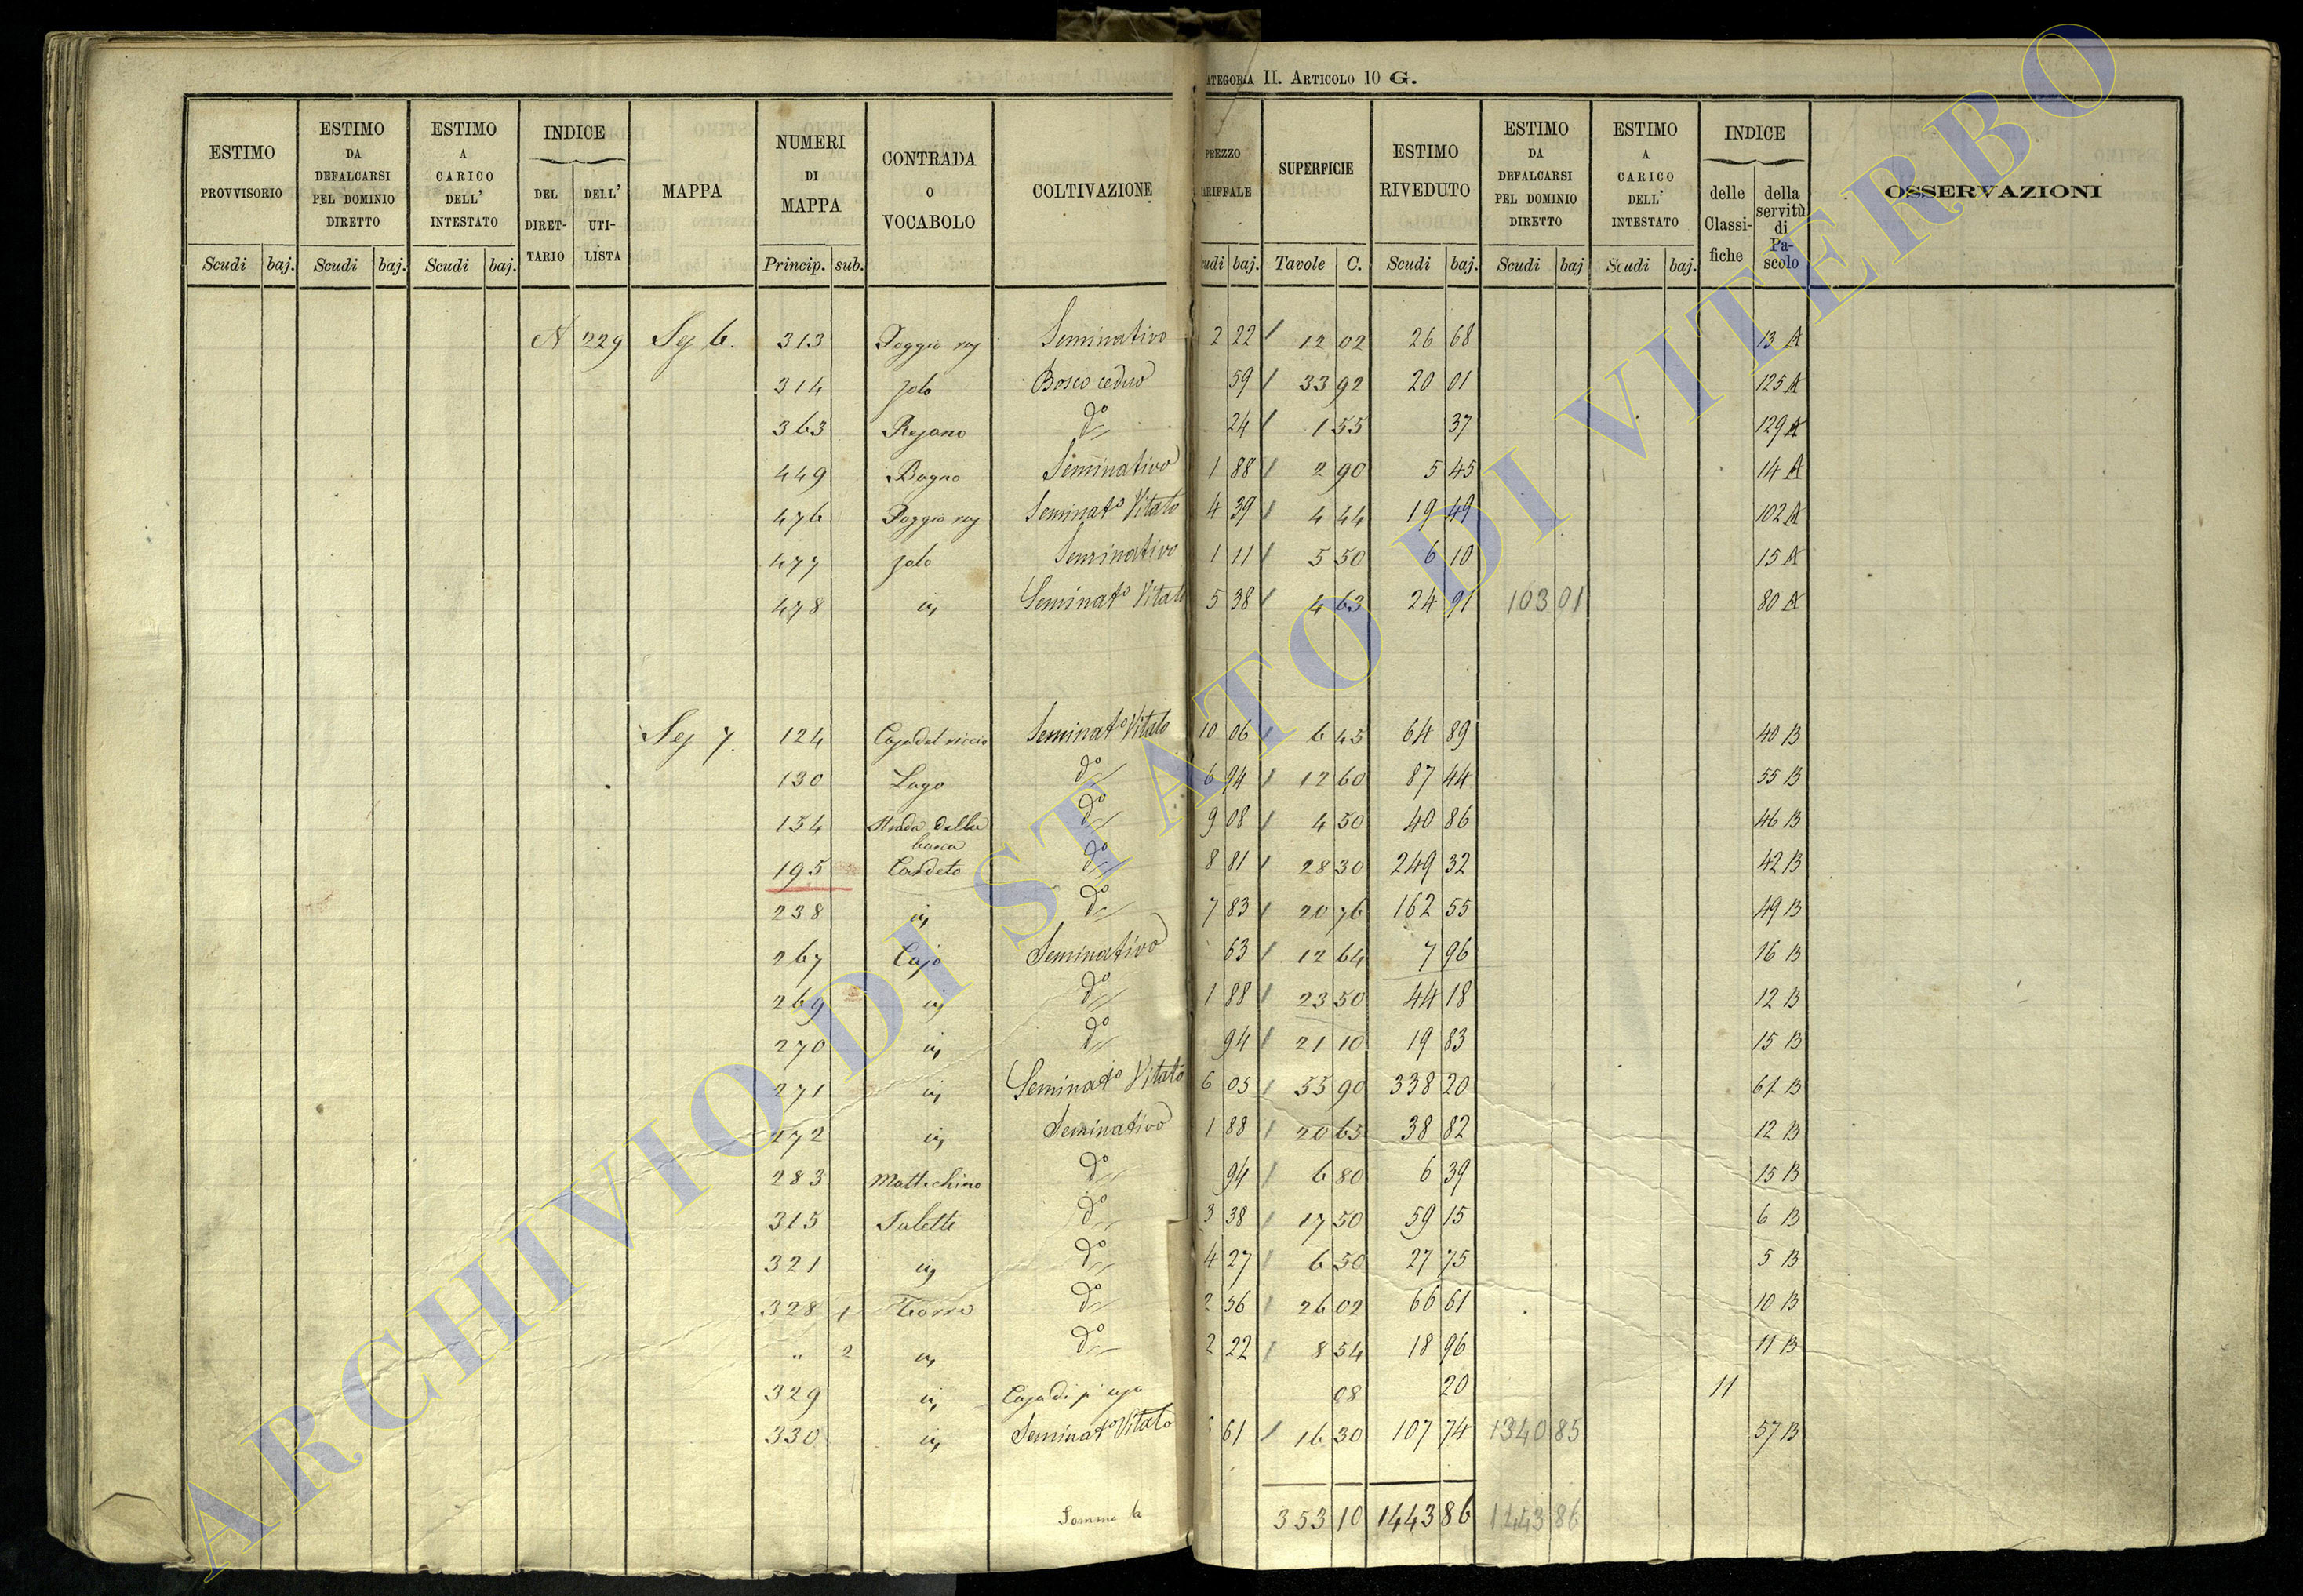 ATEGORIA II. ARTICOLO 10 G.
ESTIMO PROVVISORIO | ESTIMO DA DEFALCARSI PEL DOMINIO DIRETTO | ESTIMO A CARICO DELL' INTESTATO | INDICE | MAPPA | NUMERI DI MAPPA | CONTRADA O VOCABOLO | COLTIVAZIONE | PREZZO | SUPERFICIE | ESTIMO RIVEDUTO | ESTIMO DA DEFALCARSI PEL DOMINIO DIRETTO | ESTIMO A CARICO DELL' INTESTATO | INDICE | OSSERVAZIONI
DEL DIRET-TARIO | DELL' UTI-LISTA | delle Classi-fiche | della servitù di Pa-scolo
Scudi | baj. | Scudi | baj. | Scudi | baj. | Princip. | sub. | baj. | Tavole | C. | Scudi | baj. | Scudi | baj | Scudi | baj.
N 229 313 Seminativo 2 22 12 02 26 68 13 A
314 Bosco ceduo 59 33 92 20 01 125 A
363 Rejano do 24 1 55 37 129 A
449 Bagno Seminativo 1 88 2 90 5 45 14 A
476 Seminato Vitato 4 39 4 44 19 49 102 A
477 Seminativo 1 11 5 50 6 10 15 A
478 Seminato Vitato 5 38 4 63 24 91 103 01 80 A
124 Seminato Vitato 10 06 6 45 64 89 40 B
130 Lago do 6 94 12 60 87 44 55 B
154 Strada della do 9 08 4 50 40 86 46 B
195 Cardeto do 8 81 28 30 249 32 42 B
238 do 7 83 20 76 162 55 49 B
267 Seminativo 63 12 64 7 96 16 B
269 do 1 88 23 50 44 18 12 B
270 do 94 21 10 19 83 15 B
271 Seminato Vitato 6 05 55 90 338 20 61 B
272 Seminativo 1 88 20 65 38 82 12 B
283 Mattechino do 94 6 80 6 39 15 B
315 do 3 38 17 50 59 15 6 B
321 do 4 27 6 50 27 75 5 B
328 1 do 2 56 26 02 66 61 10 B
" 2 do 2 22 8 54 18 96 11 B
329 08 20 11
330 Seminato Vitato 61 16 30 107 74 1340 85 57 B
Somma 353 10 1443 86 1443 86
ARCHIVIO DI STATO DI VITERBO